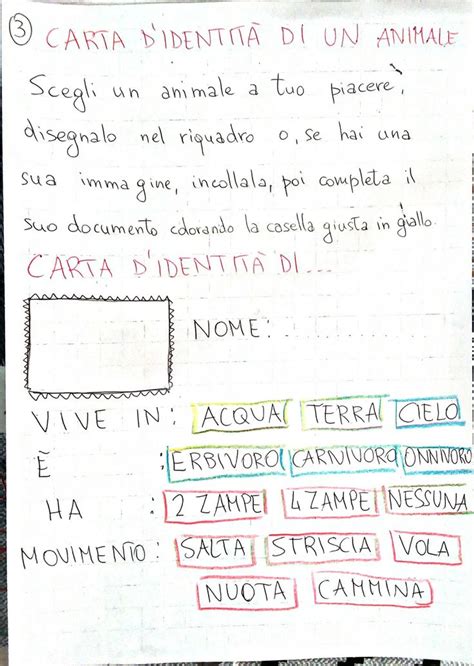 3 CARTA D'IDENTITÀ DI UN ANIMALE
Scegli un animale a tuo piacere,
disegnalo nel riquadro o, se hai una
sua immagine, incollala, poi completa il
suo documento colorando la casella giusta in giallo.
CARTA D'IDENTITÀ DI...
NOME: ..........
VIVE IN: ACQUA TERRA CIELO
È : ERBIVORO CARNIVORO ONNIVORO
HA : 2 ZAMPE 4 ZAMPE NESSUNA
MOVIMENTO: SALTA STRISCIA VOLA
NUOTA CAMMINA